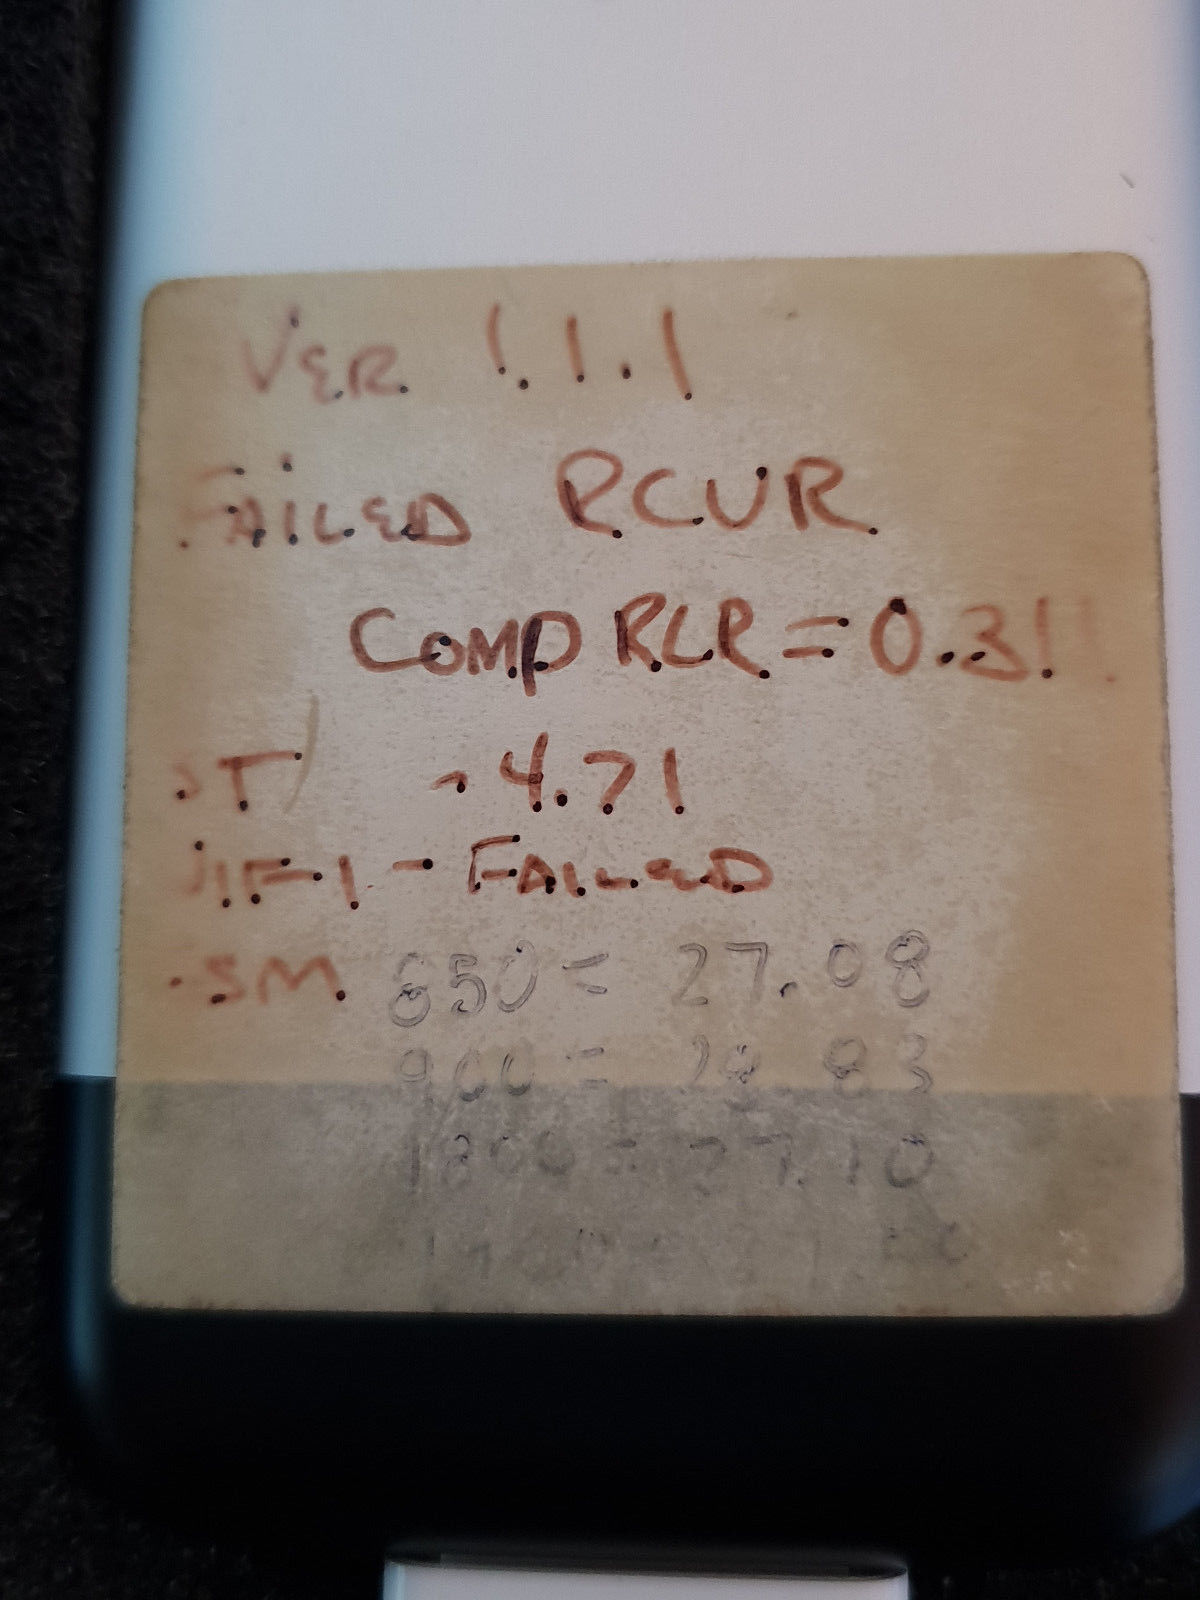 VER. 1.1.1
FAILED RCVR
COMP RLR = 0.31
BT - 4.71
WIFI - FAILED
GSM 850 = 27.08
900 = 28.83
1800 = 27.10